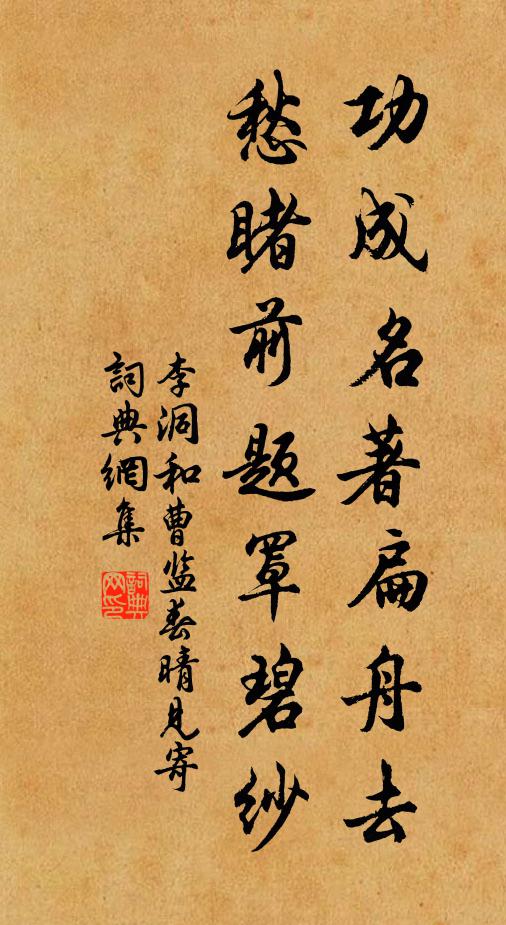 功成名著扁舟去
愁睹前题罩碧纱
李洞和曹监春晴见寄
詞典網集
詞典网印